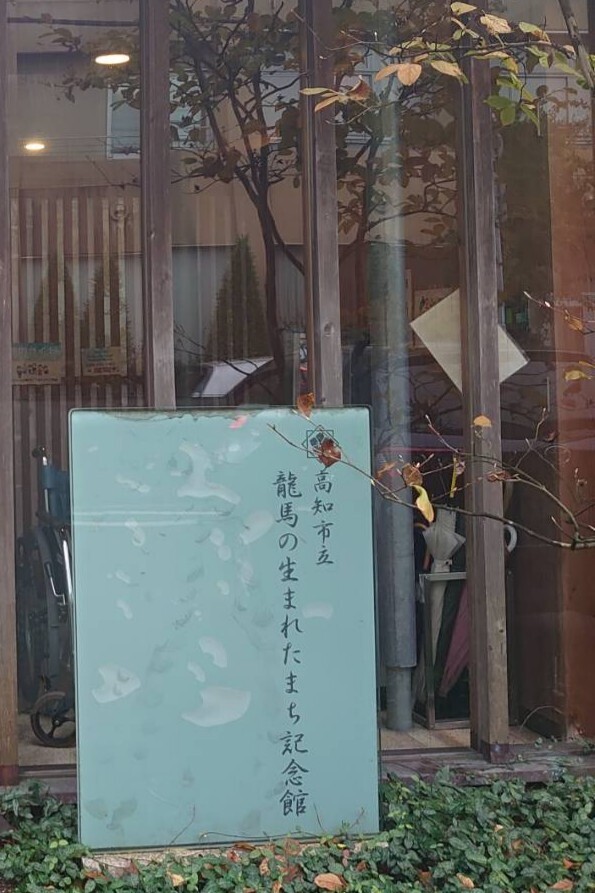 高知市立
龍馬の生まれたまち記念館